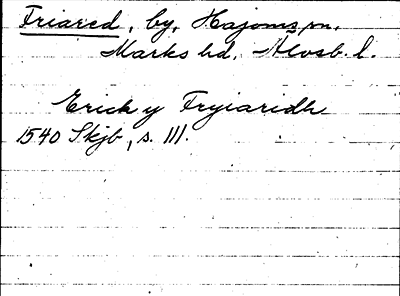 Friared, by, Hajoms sn,
Marks hd, Älvsb. l.
Erich y Fryiaridh
1540 Skjb, s. 111.